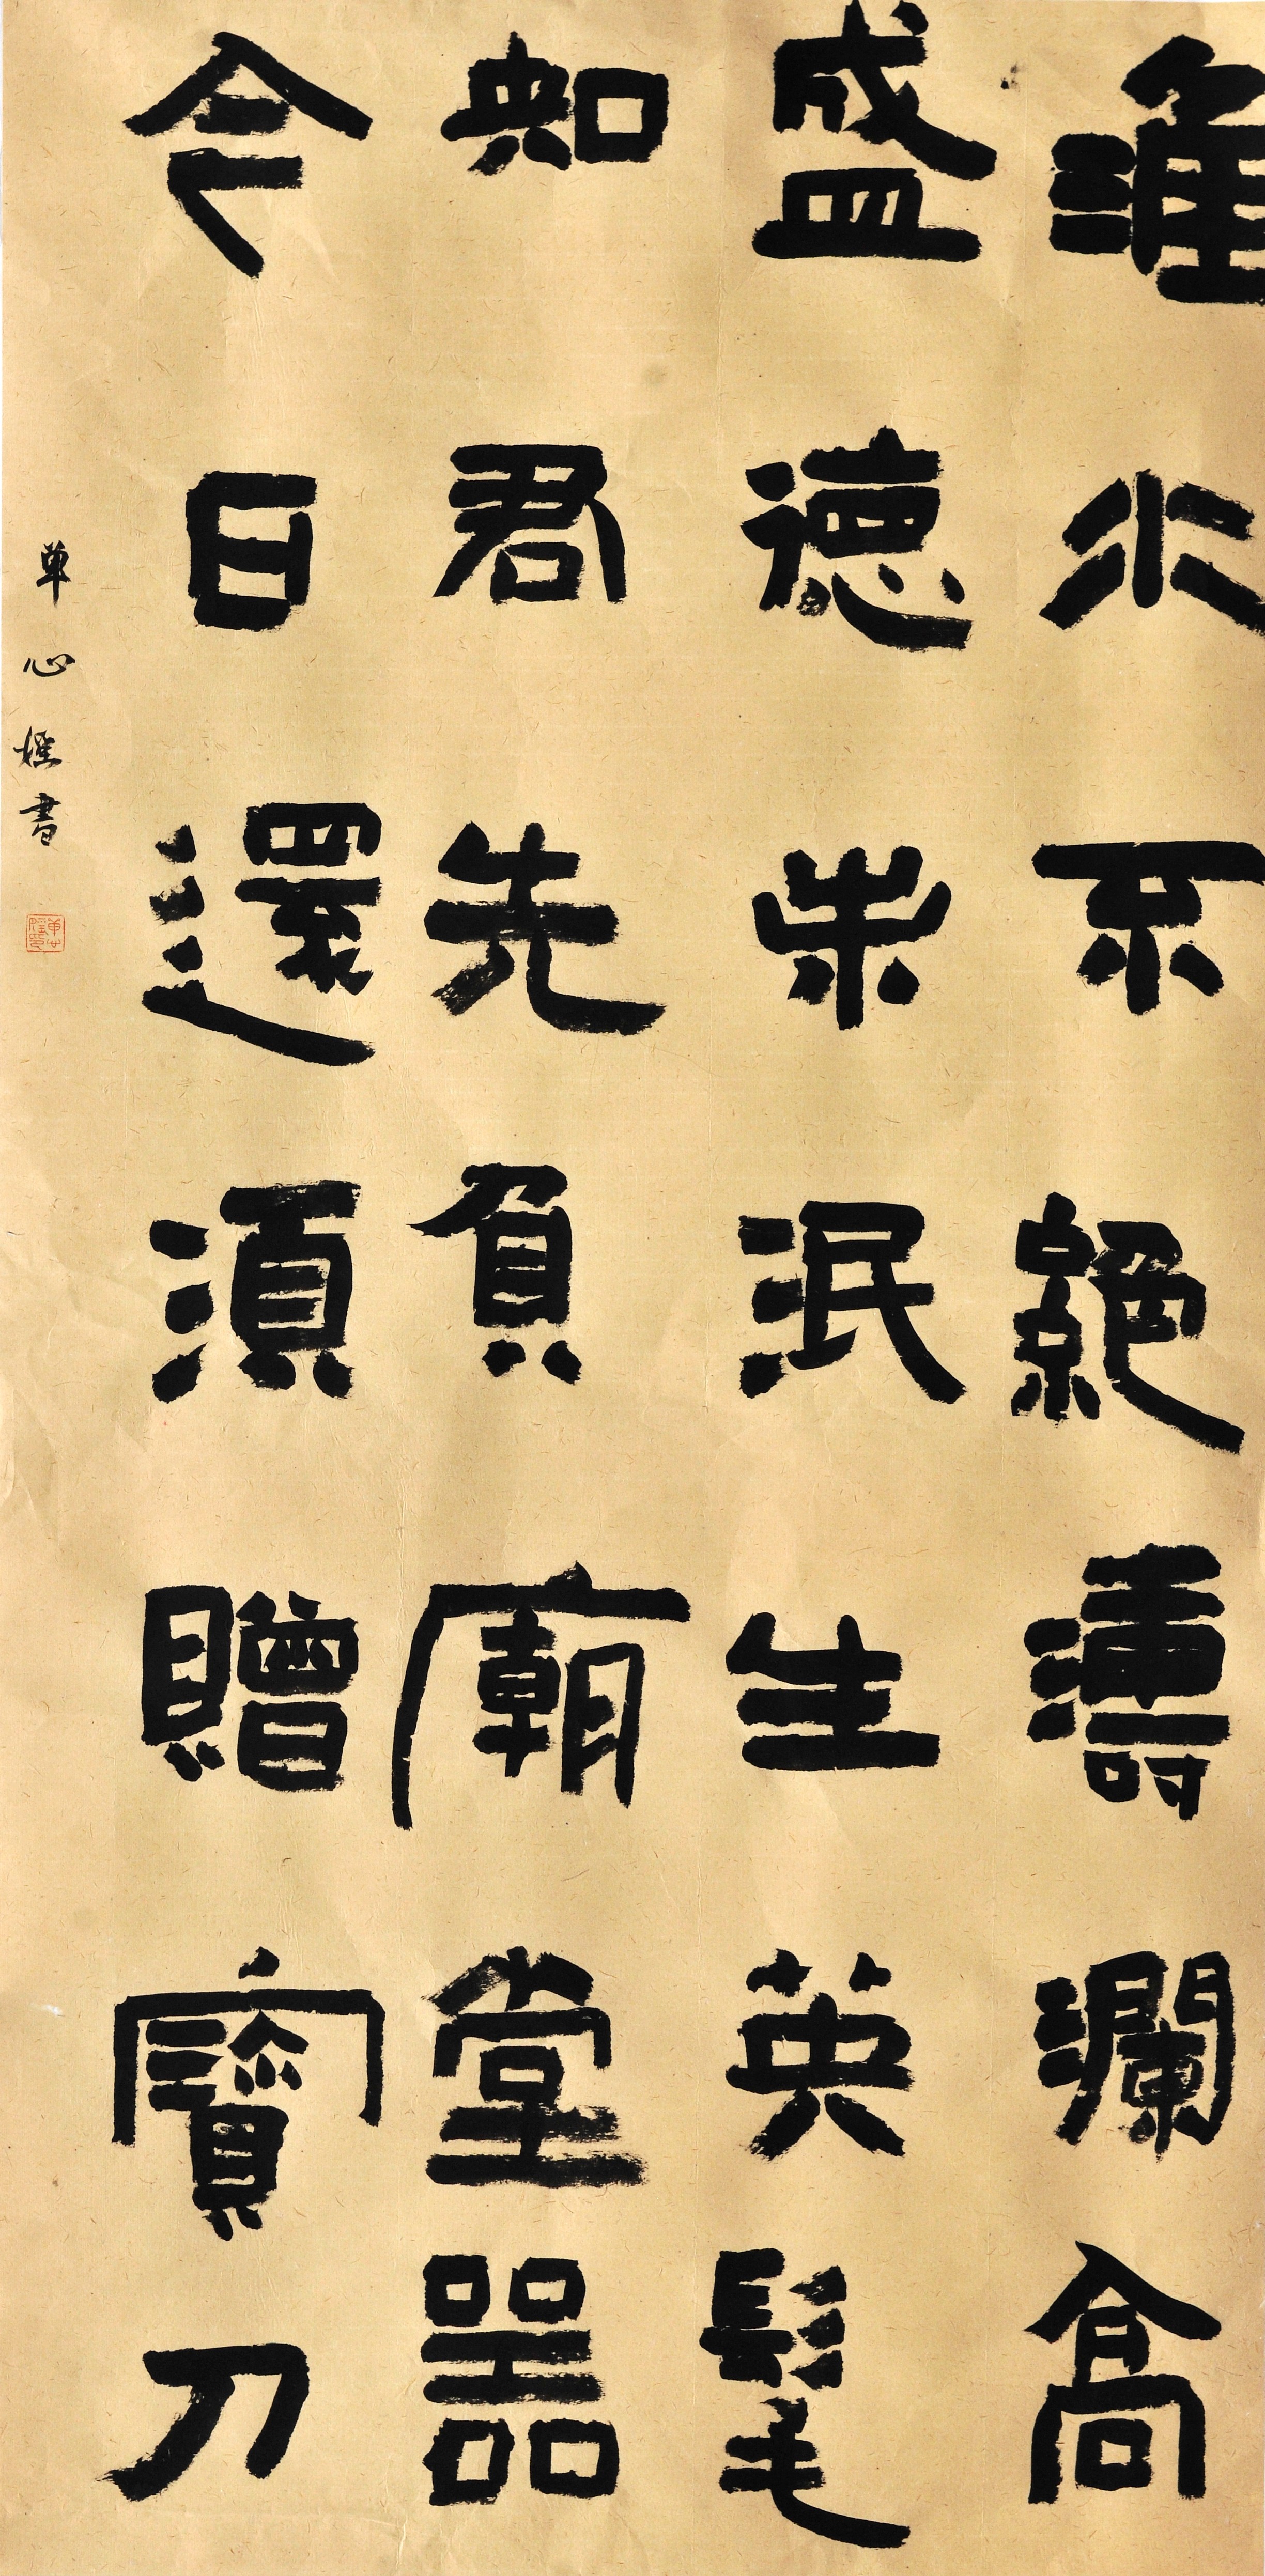 淮水不絕濤瀾高
盛德未泯生英髦
知君先負廟堂器
今日還須贈寶刀
單心㛼書